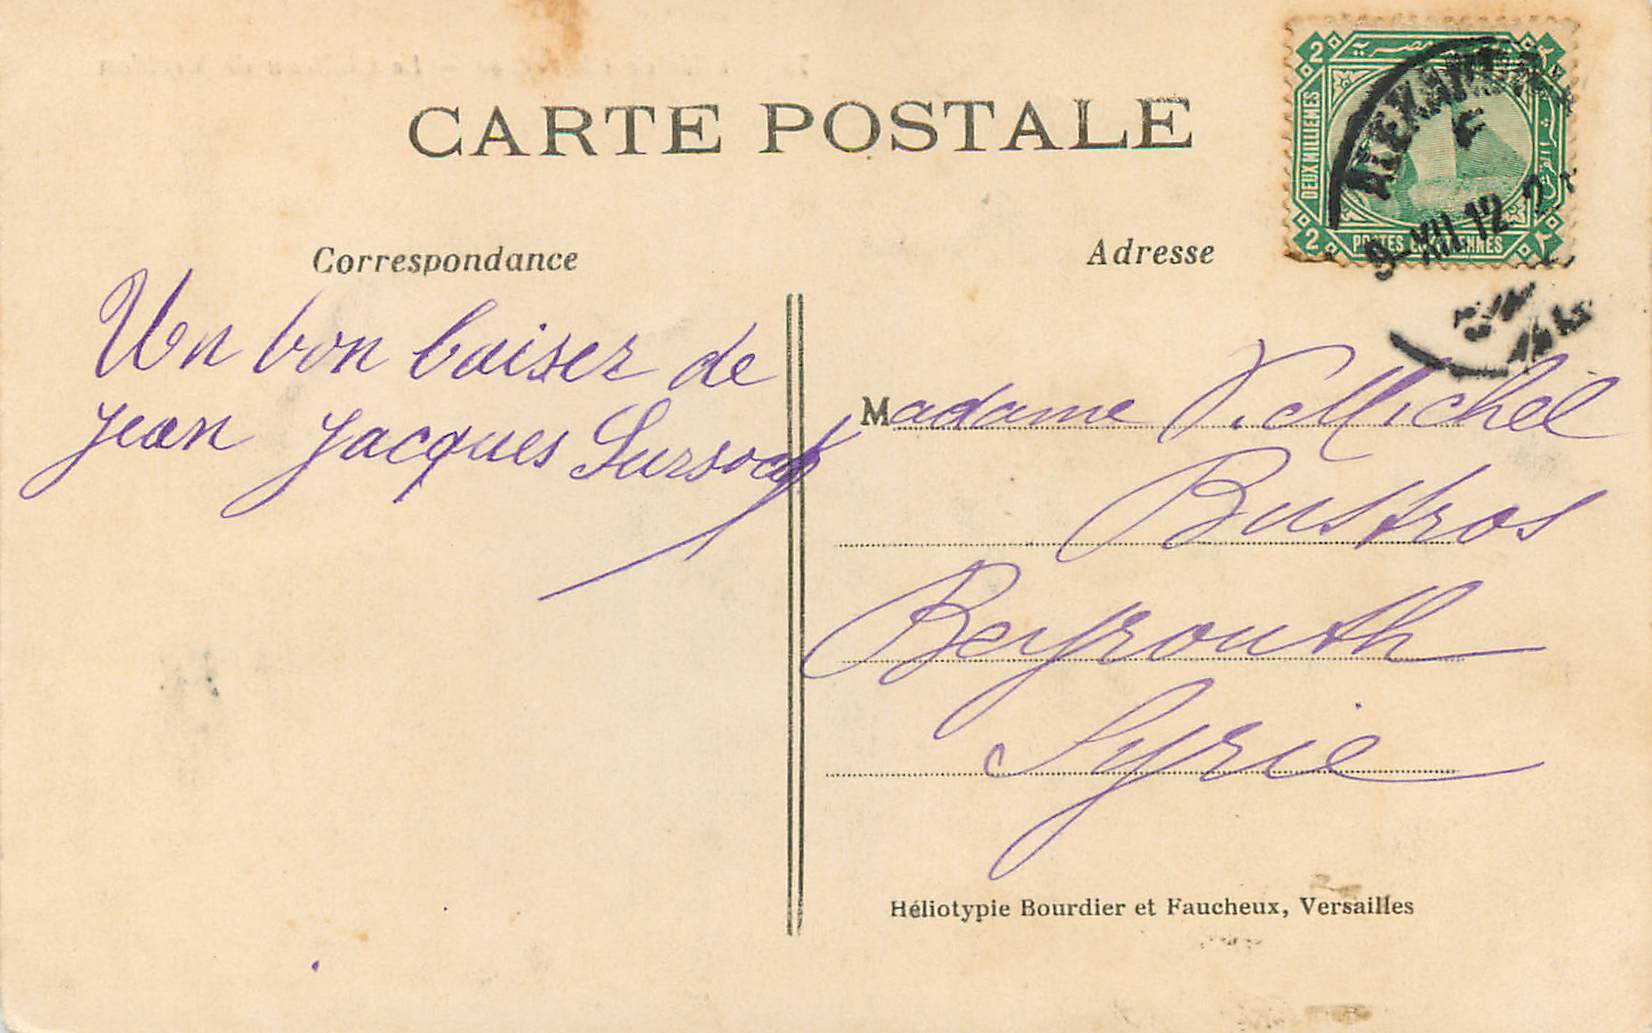 CARTE POSTALE
Correspondance
Un bon baiser de
Jean Jacques Sursock
Adresse
Madame V. Michel
Bustros
Beyrouth
Syrie
Héliotypie Bourdier et Faucheux, Versailles
2
2
DEUX MILLIEMES
POSTES EGYPTIENNES
ALEXANDRIE
9-XII 12